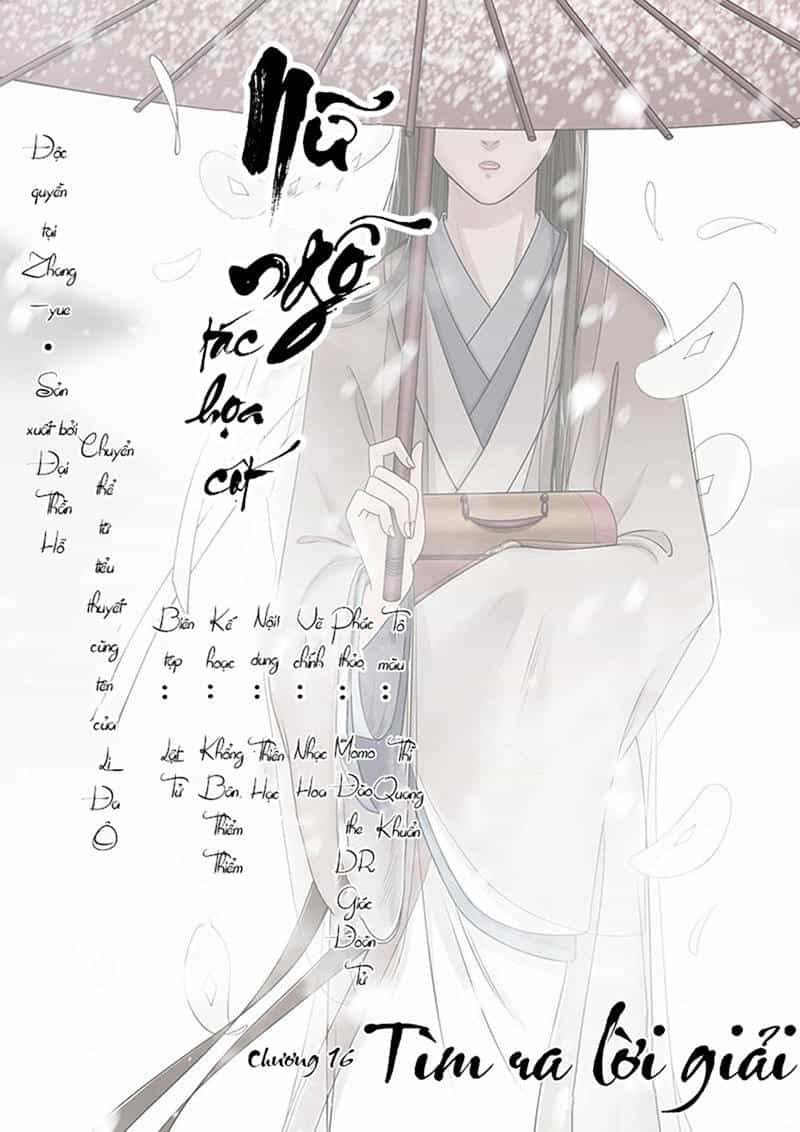 Nữ
ngỗ
tác
họa
cốt
Độc
quyền
tại
Zhang
-yue
•
Sản
xuất bởi
Đại
Thần
Hỗ
Chuyển
thể
từ
tiểu
thuyết
cùng
tên
của
Li
Đa
Ô
Biên
tập
:
Lật
Tử
Kế
hoạc
:
Khổng
Bân,
Thiểm
Thiểm
Nội
dung
:
Thiên
Hạc
Vẽ
chính
:
Nhạc
Hoa
Phác
thảo
:
Momo
Đào
the
DR
Giác
Đoàn
Tử
Tô
màu
:
Thì
Quang
Khuẩn
Chương 16
Tìm ra lời giải